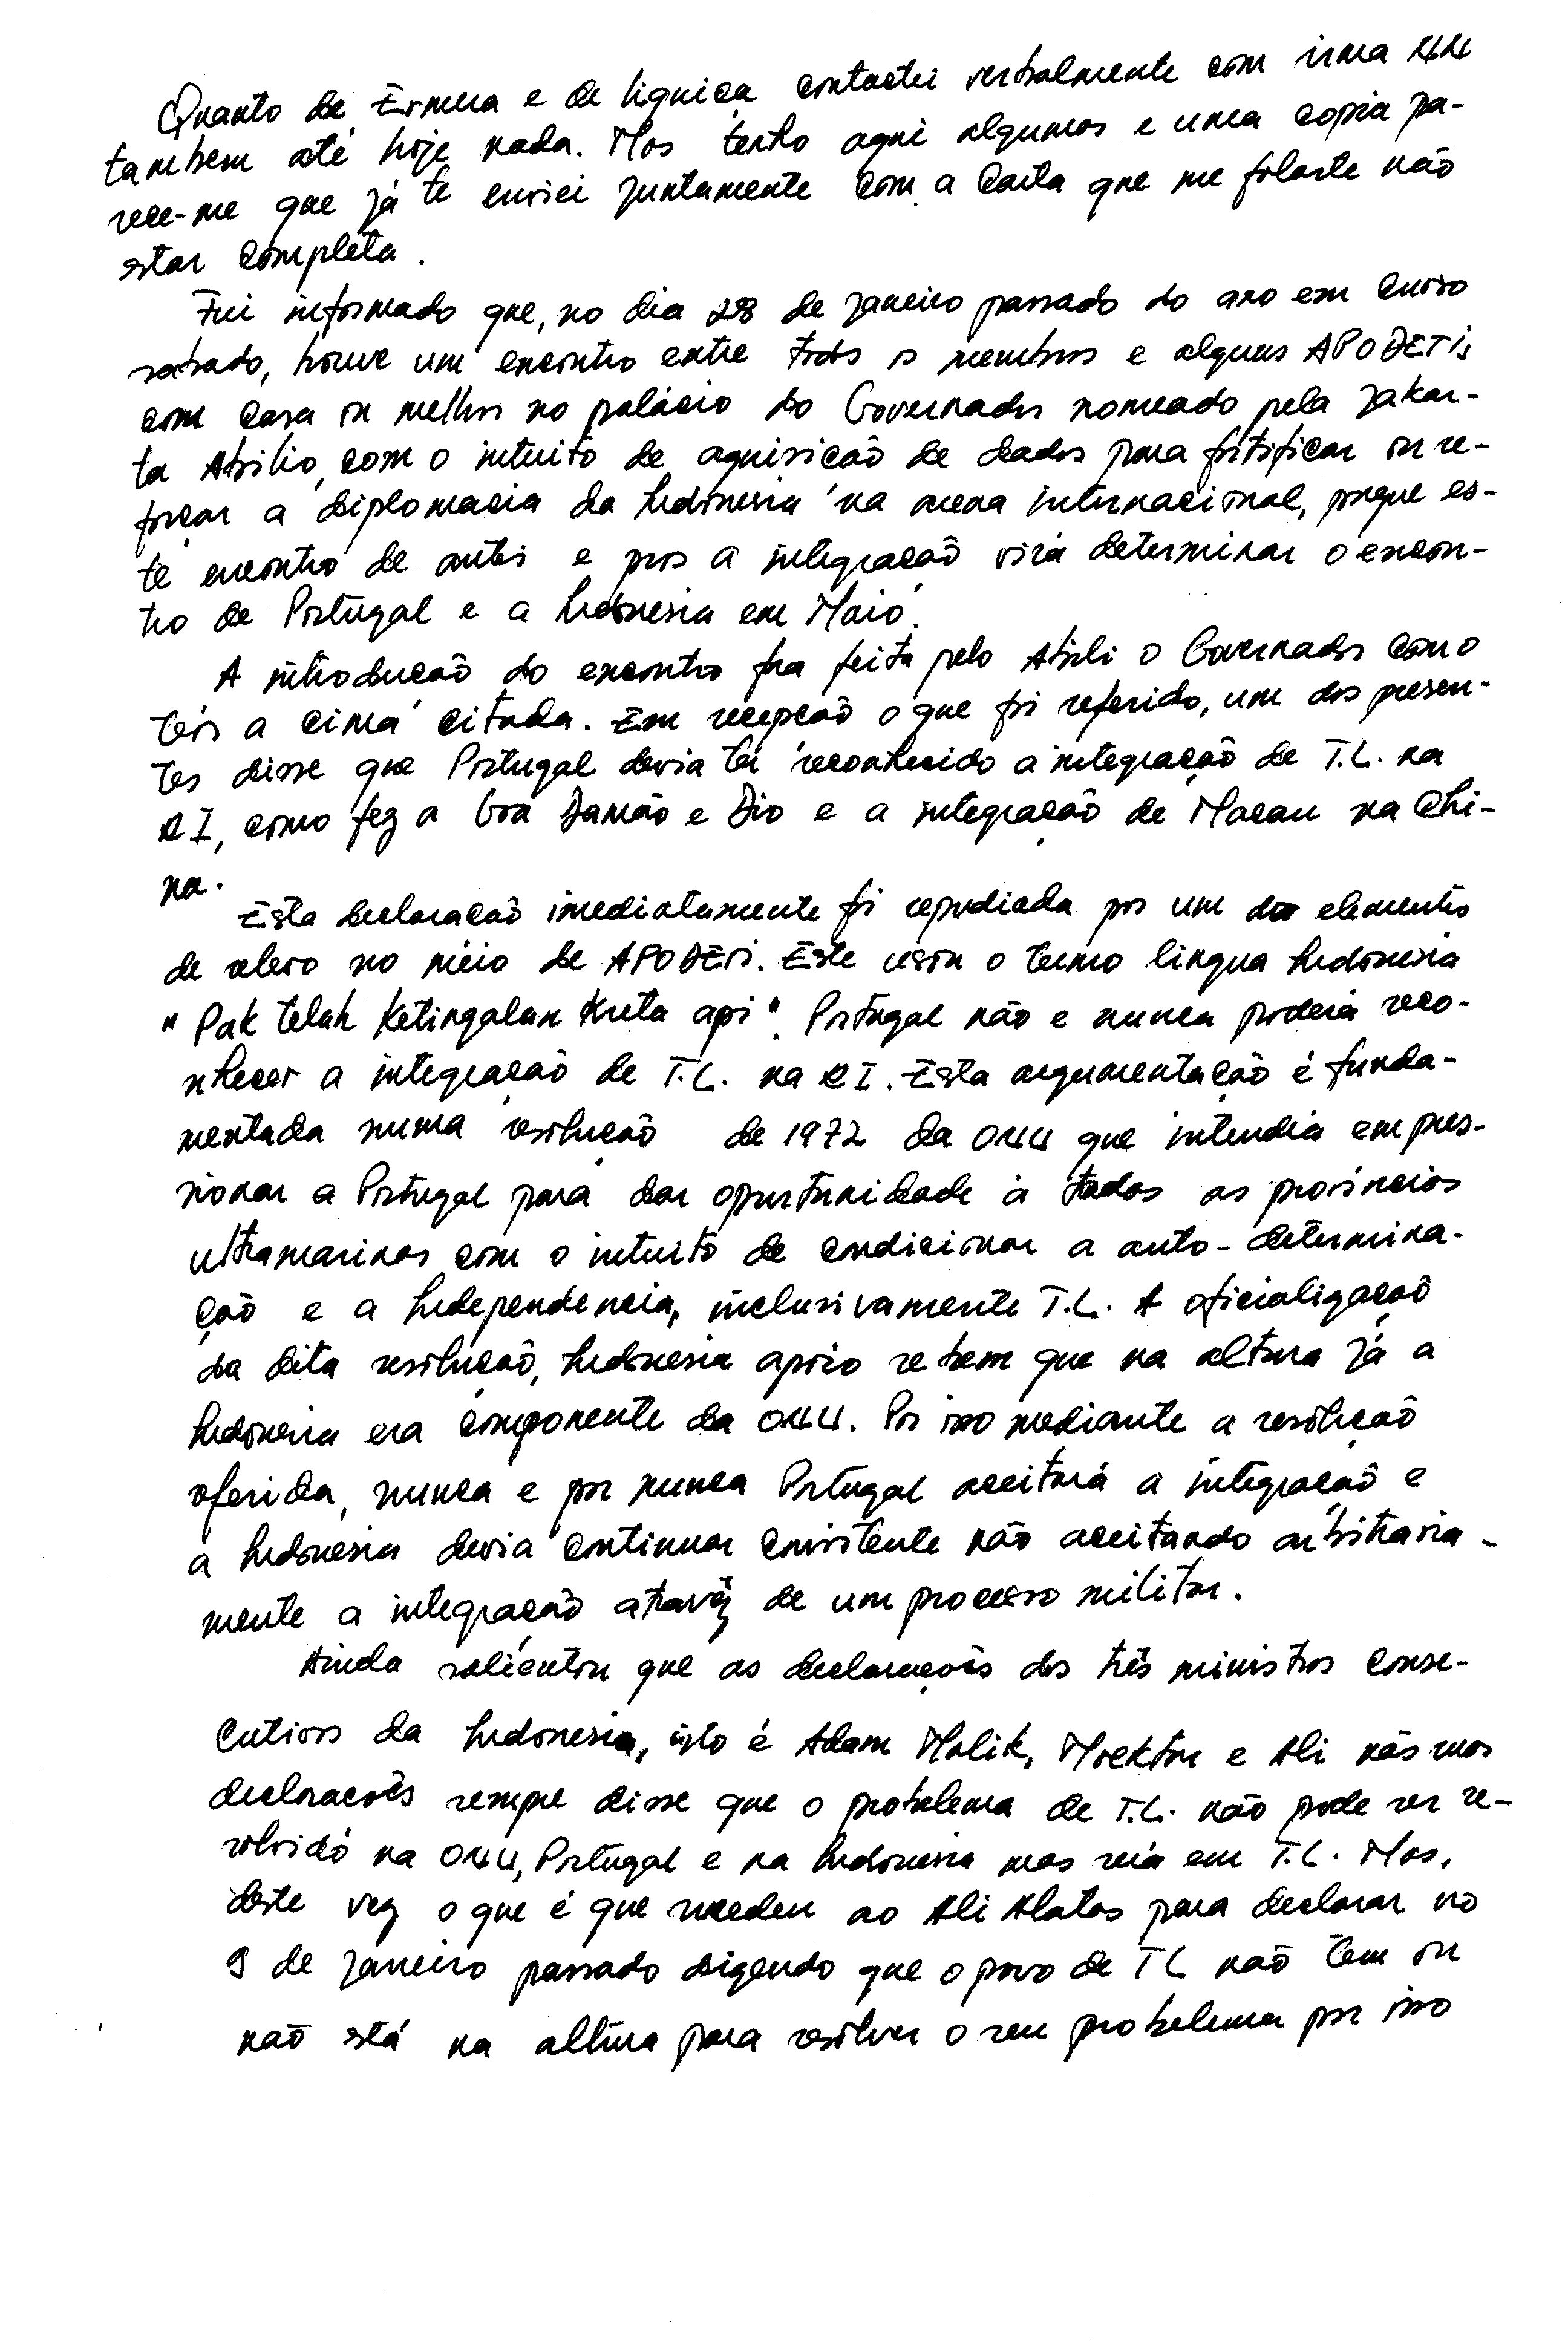 Quanto de Ermera e de liquiça contactei verbalmente com irma
tambem até hoje nada. Mas tenho aqui algumas e uma copia pa-
rece-me que já te enviei juntamente com a carta que me falaste não
estar completa.
Fui informado que, no dia 28 de janeiro passado do ano em curso
sabado, houve um encontro entre todos os membros e alguns APODETIs
com casa ou melhor no palácio do Governador nomeado pela Jakar-
ta Abilio, com o intuito de aquisição de dados para fortificar ou re-
forçar a diplomacia da Indonesia na arena internacional, porque es-
te encontro de antes e pros a integração virá determinar o encon-
tro de Portugal e a Indonesia em Maio.
A introdução do encontro fora feita pelo Abili o Governador como
teôs a cima citada. Em recepção o que foi referido, um dos presen-
tes disse que Portugal devia ter reconhecido a integração de T.L. na
RI, como fez a Goa Damão e Dio e a integração de Macau na Chi-
na.
Esta declaração imediatamente foi repudiada por um dos elementos
de relevo no meio de APODETi. Este usou o termo lingua Indonesia
"Pak telah Ketingalan Kreta api". Portugal não e nunca poderá reco-
nhecer a integração de T.L. na RI. Esta argumentação é funda-
mentada numa resolução de 1972 da ONU que intendia em pres-
sionar a Portugal para dar oportunidade à todas as provincias
ultramarinas com o intuito de condicionar a auto-determina-
ção e a Independencia, inclusivamente T.L. A oficialização
da dita resolução, Indonesia apoio se bem que na altura já a
Indonesia era componente da ONU. Por isso mediante a resolução
oferida, nunca e por nunca Portugal aceitará a integração e
a Indonesia devia continuar consistente não aceitando arbitraria-
mente a integração através de um processo militar.
Ainda salientou que as declarações dos três ministros conse-
cutivos da Indonesia, isto é Adam Malik, Moektar e Ali nas suas
declaracoês sempre disse que o probelema de T.L. não pode ser re-
solvido na ONU, Portugal e na Indonesia mas será em T.L. Mas,
deste vez o que é que sucedeu ao Ali Alatas para declarar no
9 de janeiro passado dizendo que o povo de TL não tem ou
não está na altura para resolver o seu probelema por isso